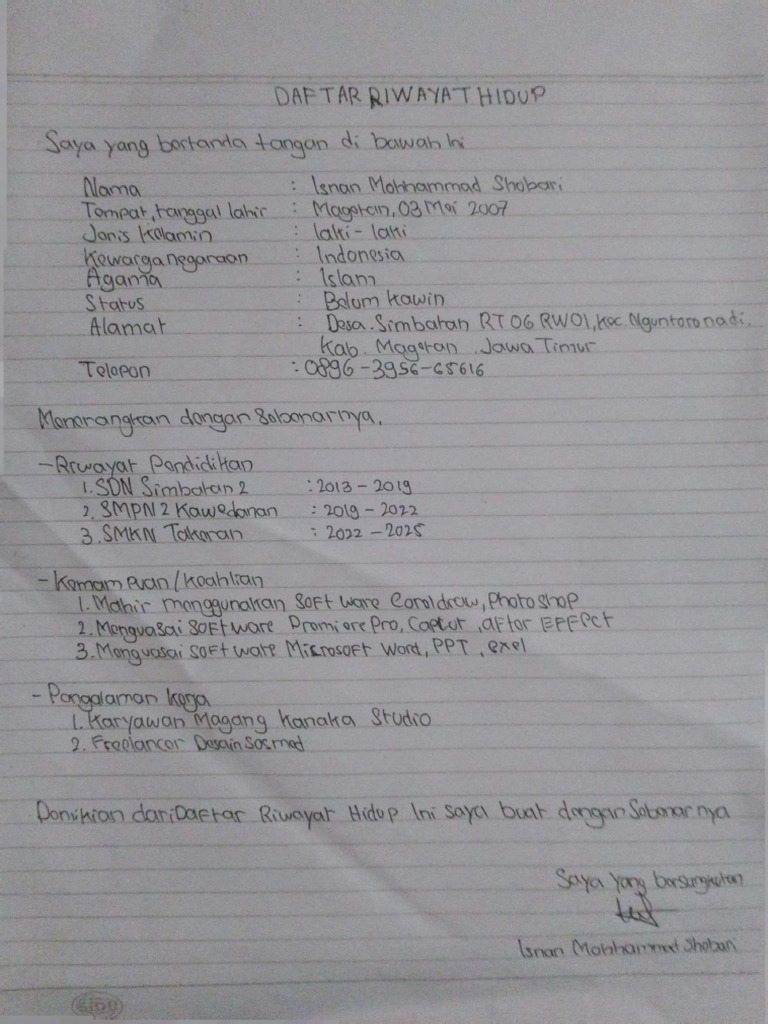 DAFTAR RIWAYAT HIDUP
Saya yang bertanda tangan di bawah Ini
Nama : Isnan Mohhammad Shobari
Tempat, tanggal lahir : Magetan, 03 Mei 2007
Jenis Kelamin : laki - laki
Kewarganegaraan : Indonesia
Agama : Islam
Status : Belum kawin
Alamat : Desa. Simbatan RT 06 RW 01, Kec. Nguntoronadi.
Kab. Magetan. Jawa Timur
Telepon : 0896 - 3956 - 65616
Menerangkan dengan Sebenarnya.
- Riwayat Pendidikan
1. SDN Simbatan 2 : 2013 - 2019
2. SMPN 2 Kawedanan : 2019 - 2022
3. SMKN Takeran : 2022 - 2025
- Kemampuan / Keahlian
1. Mahir menggunakan software Coreldraw, Photoshop
2. Menguasai software Premiere Pro, Capcut, after EFFect
3. Menguasai software Microsoft Word, PPT, exel
- Pengalaman Kerja
1. Karyawan Magang Kanaka Studio
2. Freelancer Desain Sosmed
Demikian dari Daftar Riwayat Hidup Ini saya buat dengan Sebenarnya
Saya yang bersangkutan
Isnan Mohhammad Shobari
SIDU